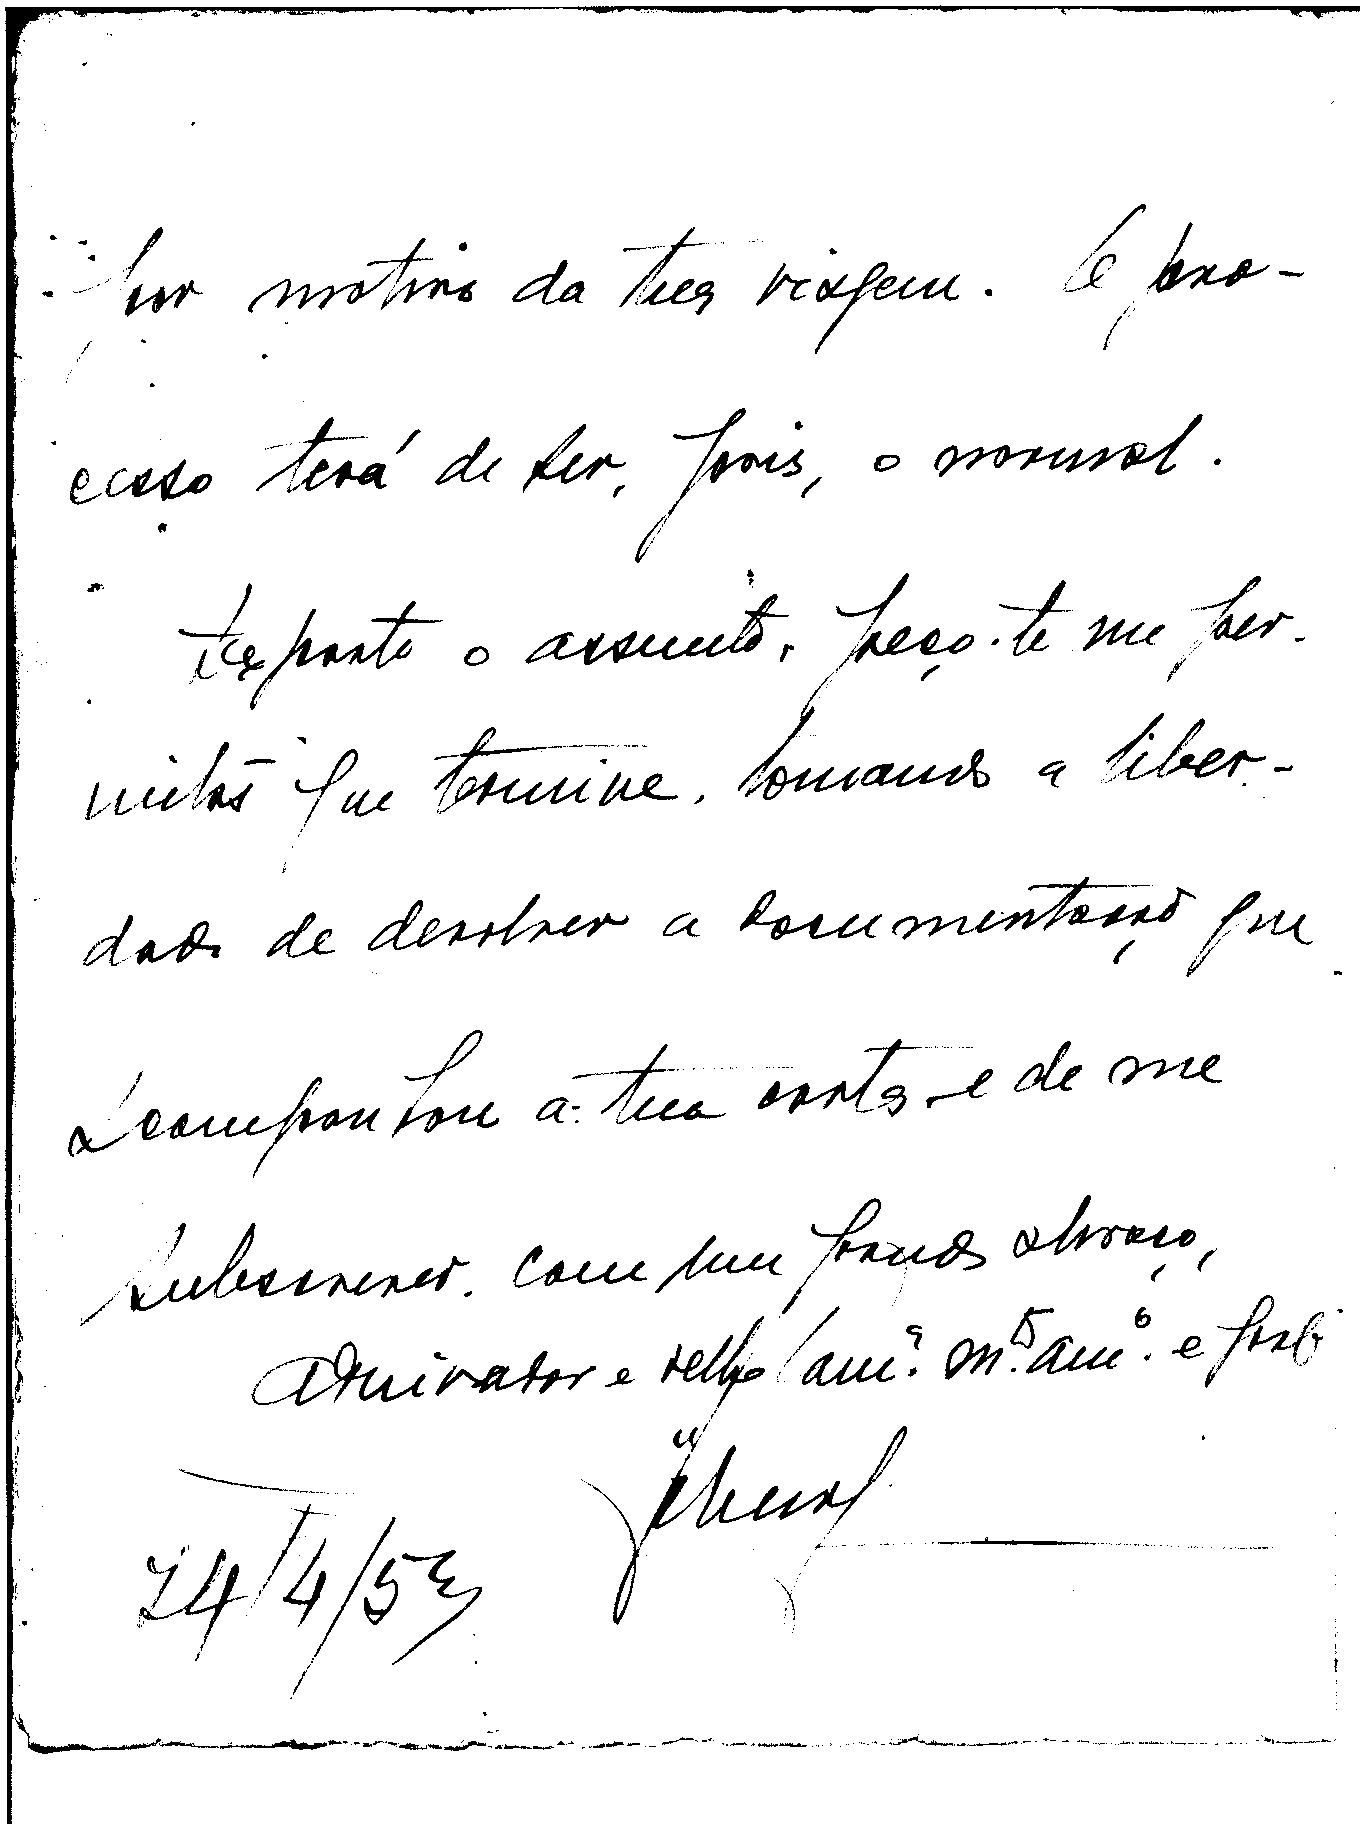 por motivo da tua viagem. O pro-
cesso terá de ser, pois, o normal.
Exposto o assunto, peço-te me per-
mitas que termine, tomando a liber-
dade de devolver a documentação que
acompanhou a tua carta e de me
subscrever. Com um grande abraço,
Admirador e velho am.º m.to am.º e
24/4/53